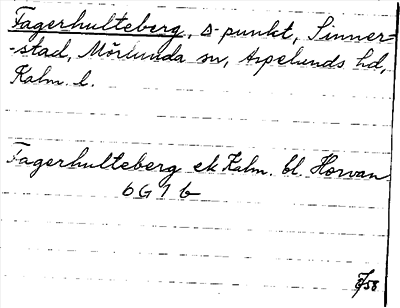 Fagerhulteberg, △-punkt, Sinner=
-stad, Mörlunda sn, Aspelunds hd,
Kalm. l.
Fagerhulteberg ek Kalm. bl. Horvan
6G 7 b
/58